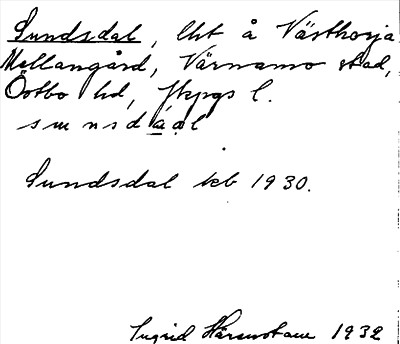 Sundsdal, lht å Västhorja
Mellangård, Värnamo stad,
Östbo hd, Jkpgs l.
sunsdạ̊ạl
Sundsdal kb 1930.
Ingrid 1932